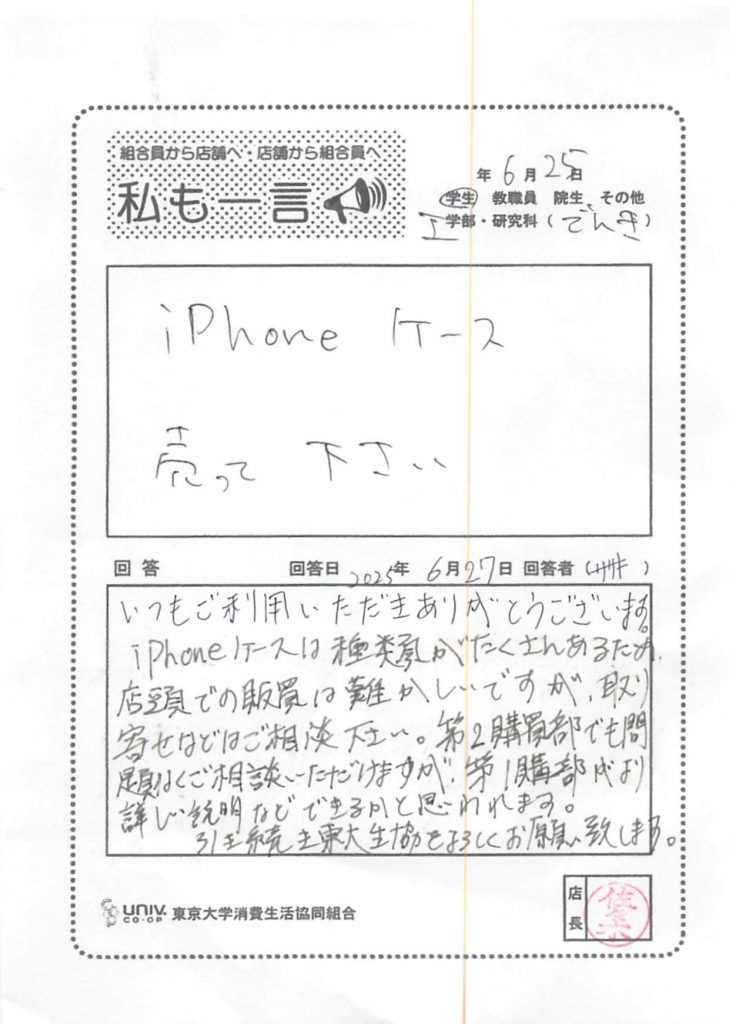 組合員から店舗へ・店舗から組合員へ
私も一言
年 6月 25日
学生 教職員 院生 その他
工 学部・研究科（でんき）
iPhone ケース
売って 下さい
回答 回答日 2025年 6月27日 回答者（ ）
いつもご利用いただきありがとうございます。
iPhoneケースは種類がたくさんあるため
店頭での販買は難かしいですが、取り
寄せなどはご相談下さい。第2購買部でも問
題なくご相談いただけますが、第1購買部がより
詳しい説明などできるかと思われます。
引き続き東大生協をよろしくお願い致します。
UNIV. CO-OP 東京大学消費生活協同組合
店長